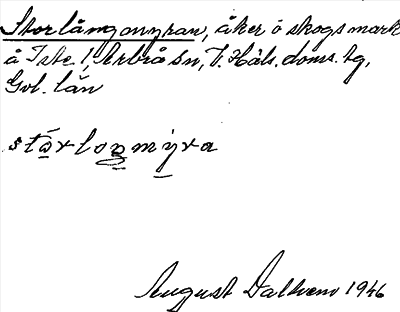 Storlångmyran, åker o skogsmark
å Iste 1, Arbrå sn, V. Häls. doms. tg,
Gvl. län
stårloŋmýra
August 1946